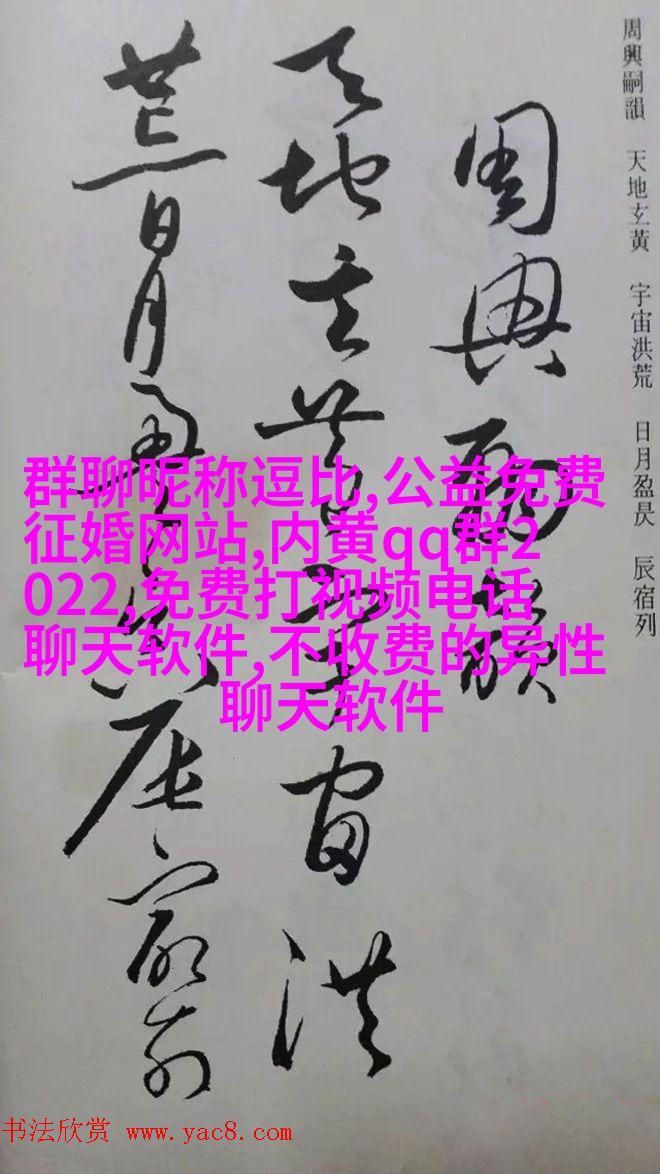 周興嗣韻 天地玄黃 宇宙洪荒 日月盈昃 辰宿列
周興嗣韻
天地玄黃宇宙洪
荒日月盈昃辰宿列
群聊昵称逗比,公益免费
征婚网站,内黄qq群2
022,免费打视频电话
聊天软件,不收费的异性
聊天软件
书法欣赏 www.yac8.com